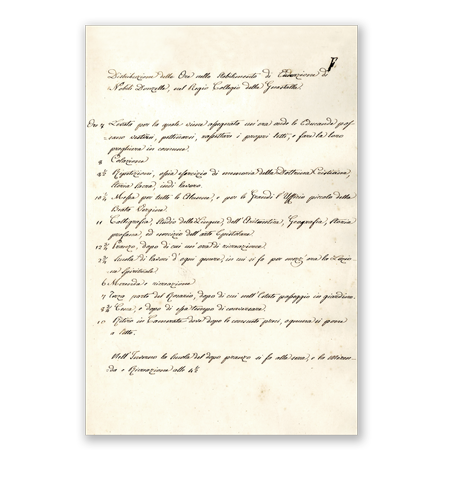 F
Distribuzione delle Ore nello Stabilimento di Educazione di
Nobili Donzelle, nel Regio Collegio delle Guastalle.
Ore 7 Levata per la quale viene assegnata un'ora onde le Educande pos-
sano vestirsi, pettinarsi, rassettare i proprj letti, e fare la loro
preghiera in comune.
8 Colazione
8½ Repetizioni, ossia esercizio di memoria della Dottrina Cristiana,
Storia Sacra, indi lavoro.
10¼ Messa per tutte le Alunne, e per le Grandi l'Uffizio piccolo della
Beata Vergine.
11 Calligrafia, Studio delle Lingue, dell'Aritmetica, Geografia, Storia
profana, ed esercizio dell'arte Epistolare
12¾ Pranzo, dopo di cui un'ora di ricreazione.
2¾ Scuola di lavori d'ogni genere, in cui si fa per mezz'ora la
Spirituale
6 Merenda e ricreazione
7 Terza parte del Rosario, dopo di cui nell'Estate passeggio in giardino.
8¾ Cena, e dopo di essa tempo di conversare.
10 Ritiro in Camerata dove dopo le consuete preci, ognuna si pone
a letto.
Nell'Inverno la Scuola del dopo pranzo si fa alle una, e la Meren-
da e Ricreazione alle 4½